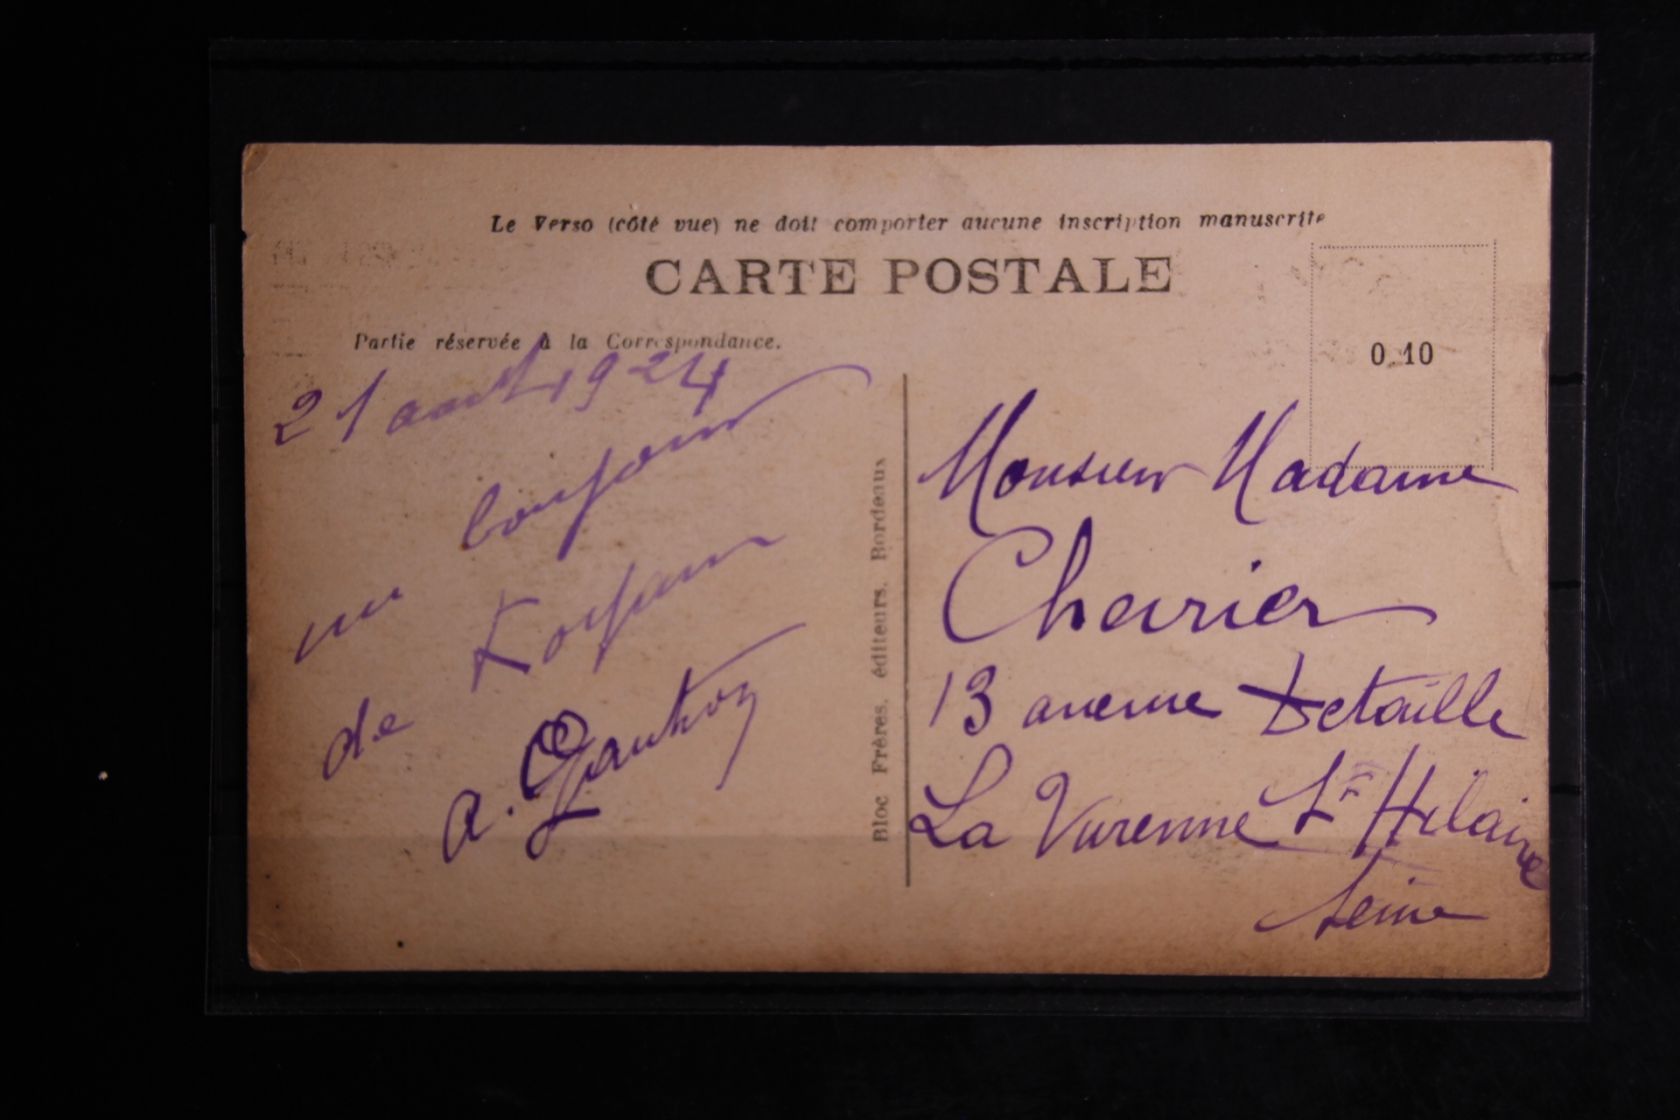 Le Verso (côté vue) ne doit comporter aucune inscription manuscrite
CARTE POSTALE
Partie réservée à la Correspondance.
0.10
21 aout 1924
un bonjour
de Royan
A. Gauthoz
Bloc Frères, éditeurs, Bordeaux
Monsieur Madame
Chevrier
13 avenue Detaille
La Varenne St Hilaire
Seine